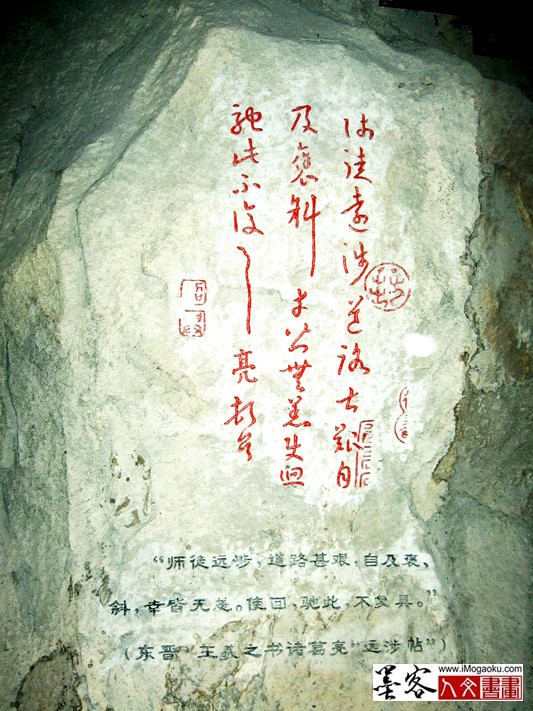 师徒远涉道路甚艰自
及褒斜幸皆無恙使迴
驰此不復一一亮顿首
“师徒远涉，道路甚艰，自及褒、
斜，幸皆无恙。使回，驰此，不复具。”
（东晋 王羲之书诸葛亮“远涉帖”）
www.iMogaoku.com
墨客人文書畫